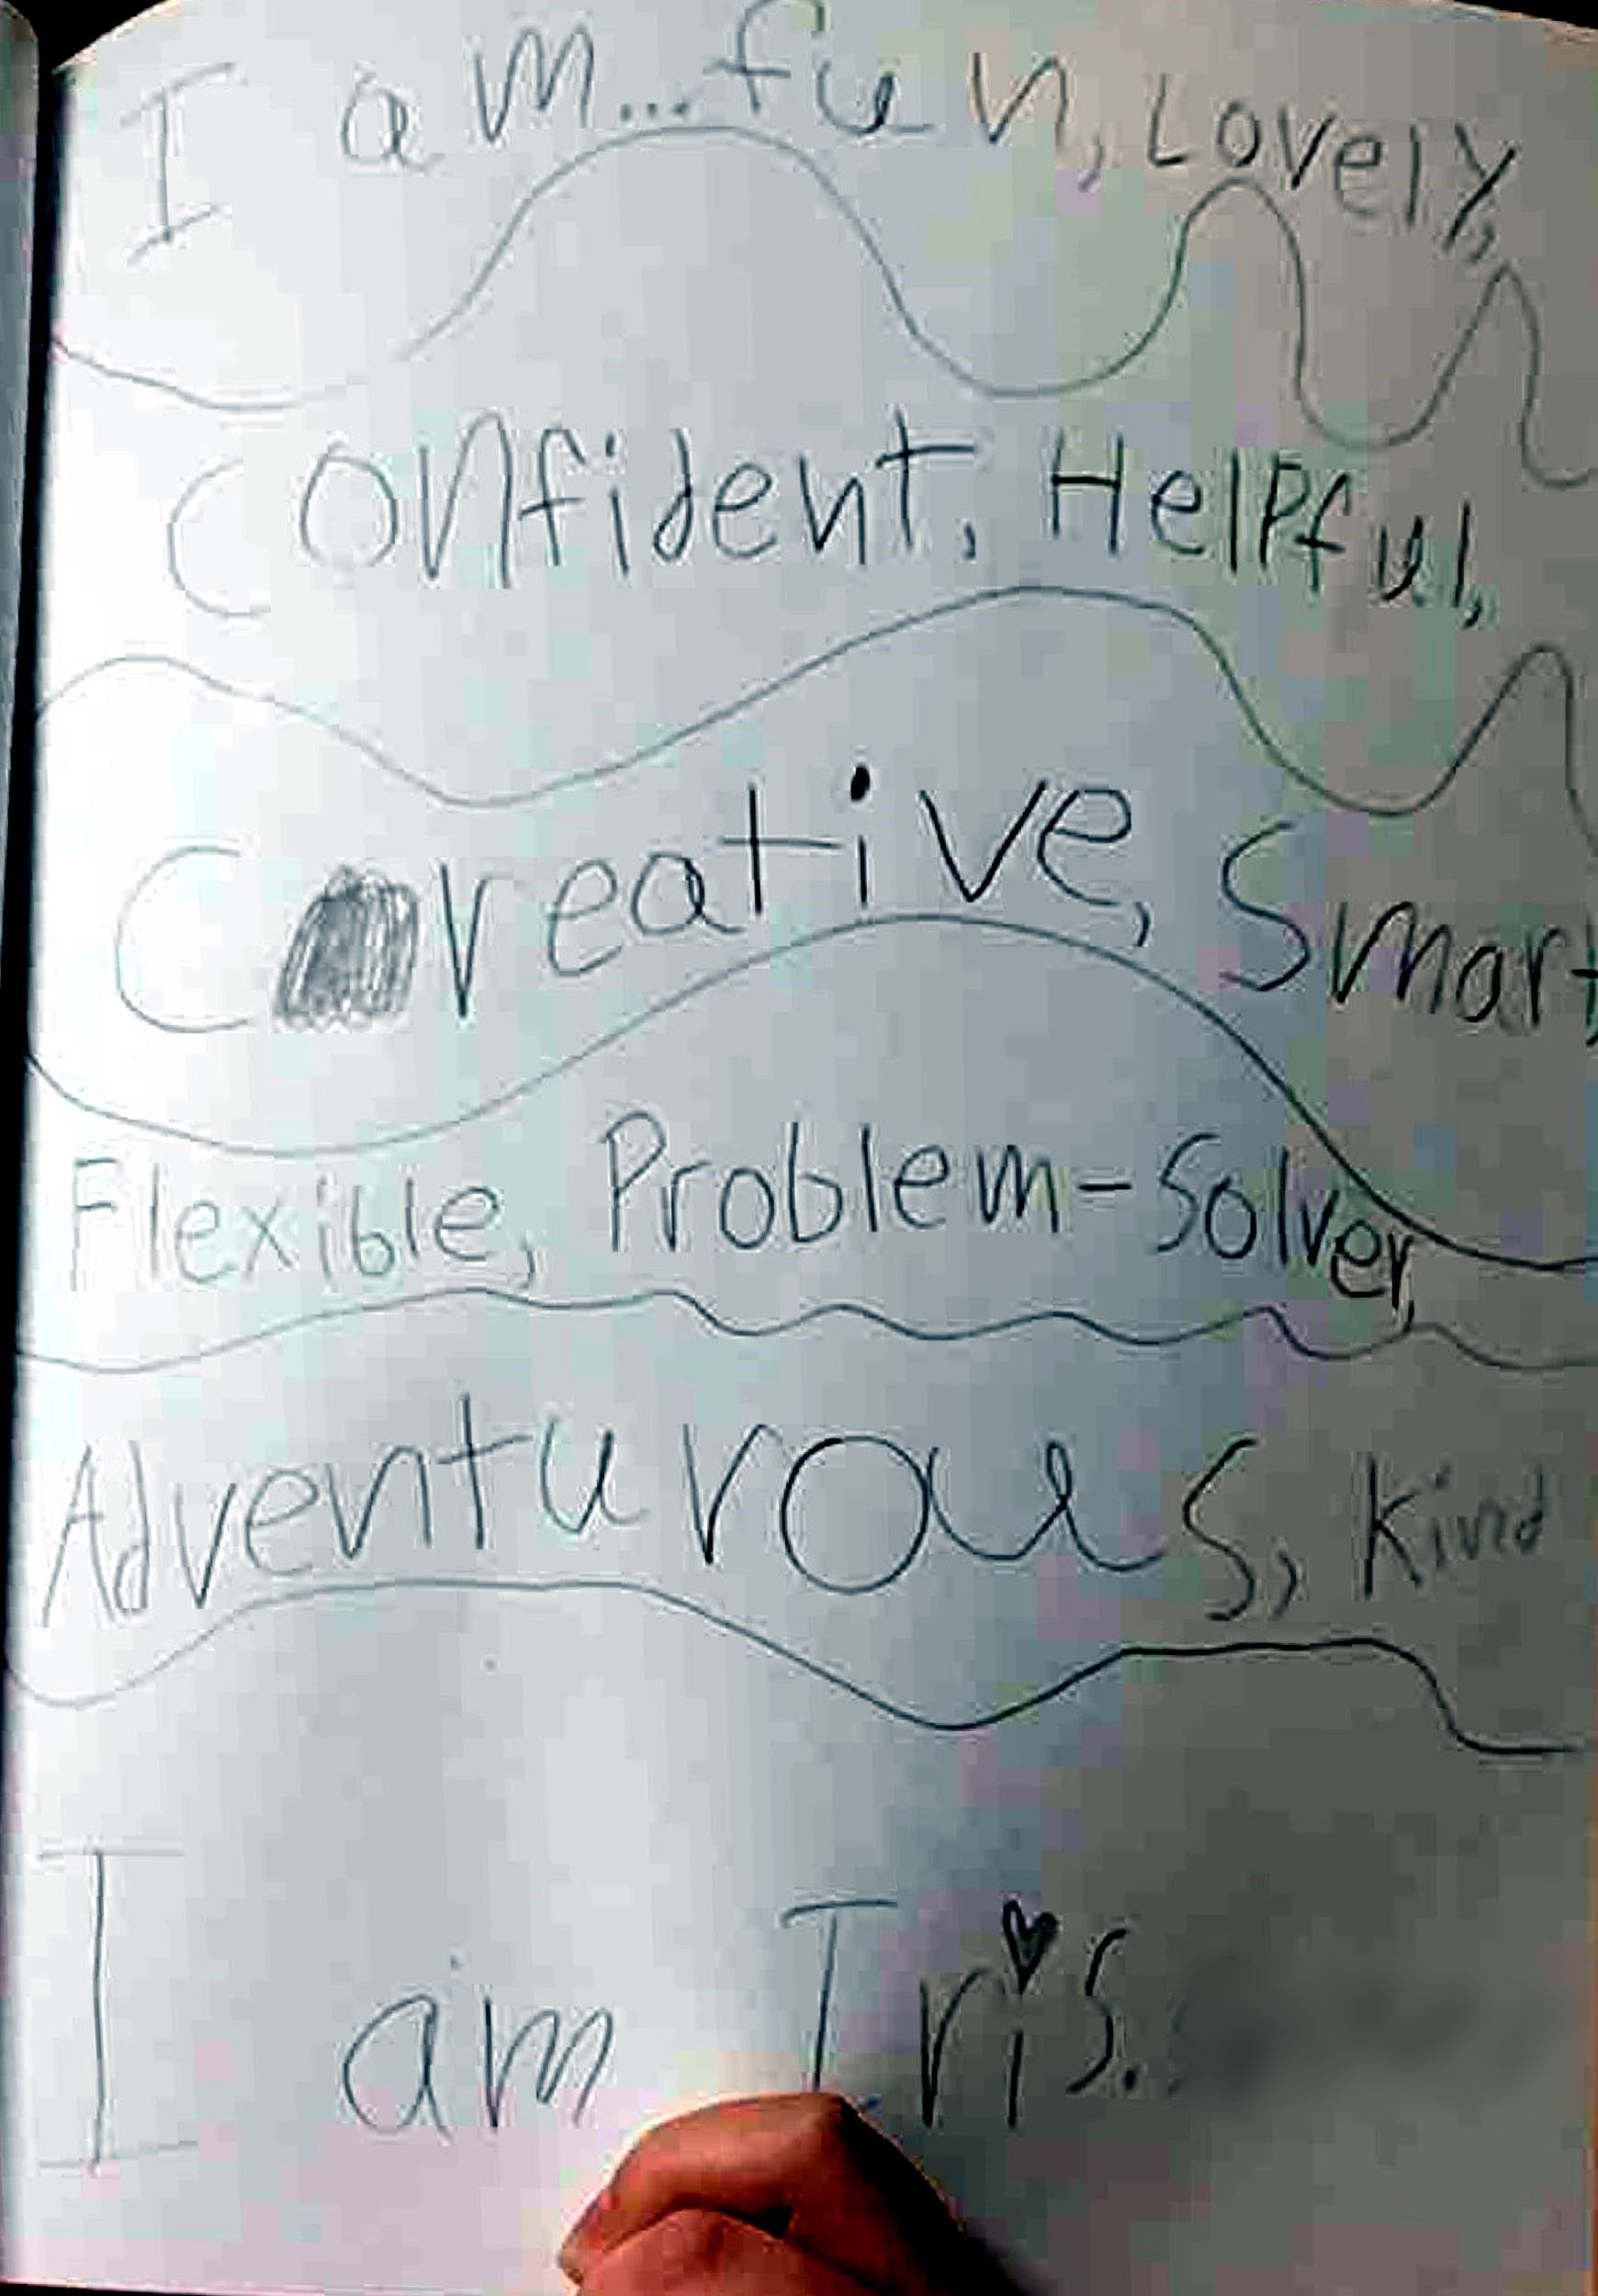 I am... fun, Lovely,
Confident, Helpful,
Creative, Smart,
Flexible, Problem-Solver,
Adventurous, Kind
I am Iris.